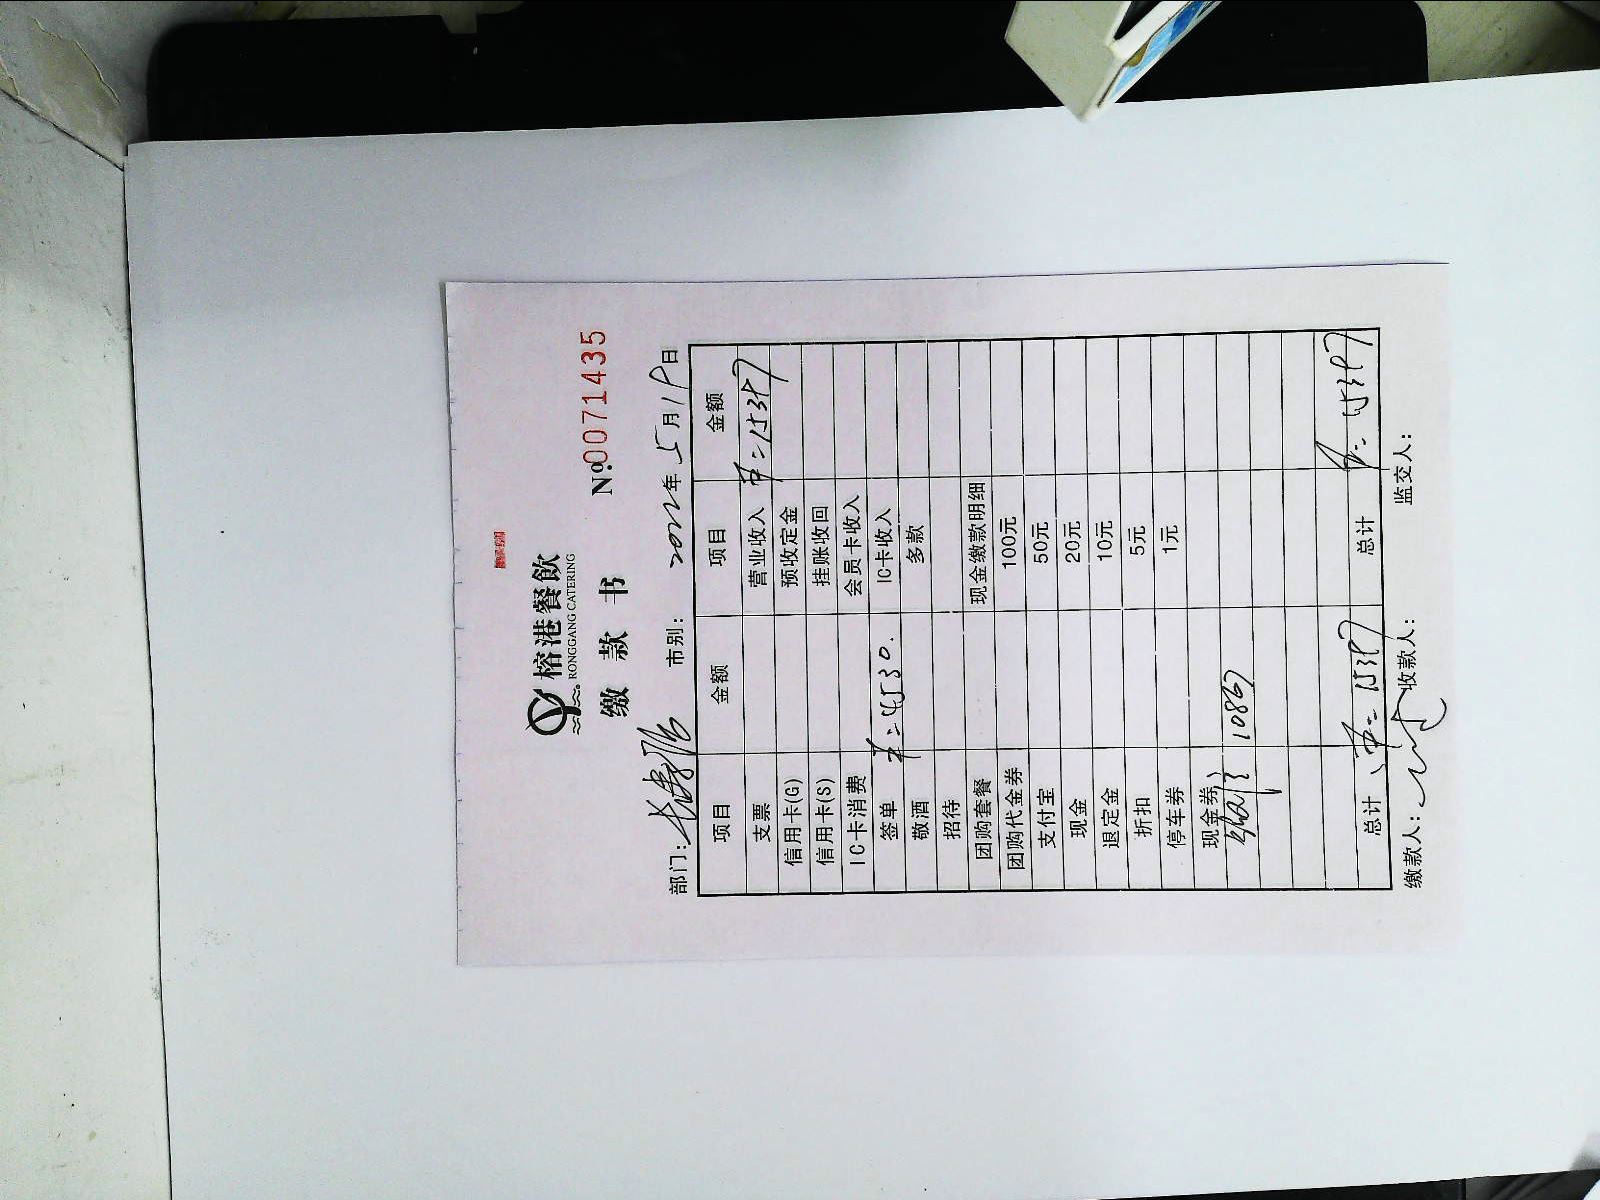 榕港餐飲
RONGGANG CATERING
缴 款 书
№0071435
部门: 市别: 2022年5月19日
项目 金额 项目 金额
支票 营业收入 中=15397
信用卡(G) 预收定金
信用卡(S) 挂账收回
IC卡消费 会员卡收入
签单 中=4530. IC卡收入
敬酒 多款
招待
团购套餐 现金缴款明细
团购代金券 100元
支付宝 50元
现金 20元
退定金 10元
折扣 5元
停车券 1元
现金券
10867
总计 中=15397 总计 中=15397
缴款人: 收款人: 监交人: